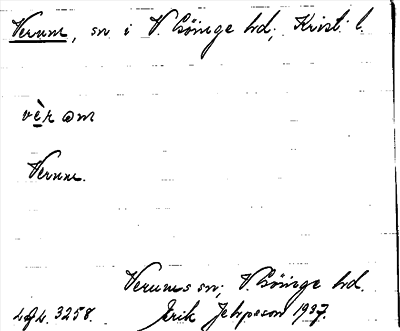 Verum, sn i V. Göinge hd; Krist. l.
vèr om
Verum.
Verums sn; V. Göinge hd.
3258. Erik Jeppsson 1937.